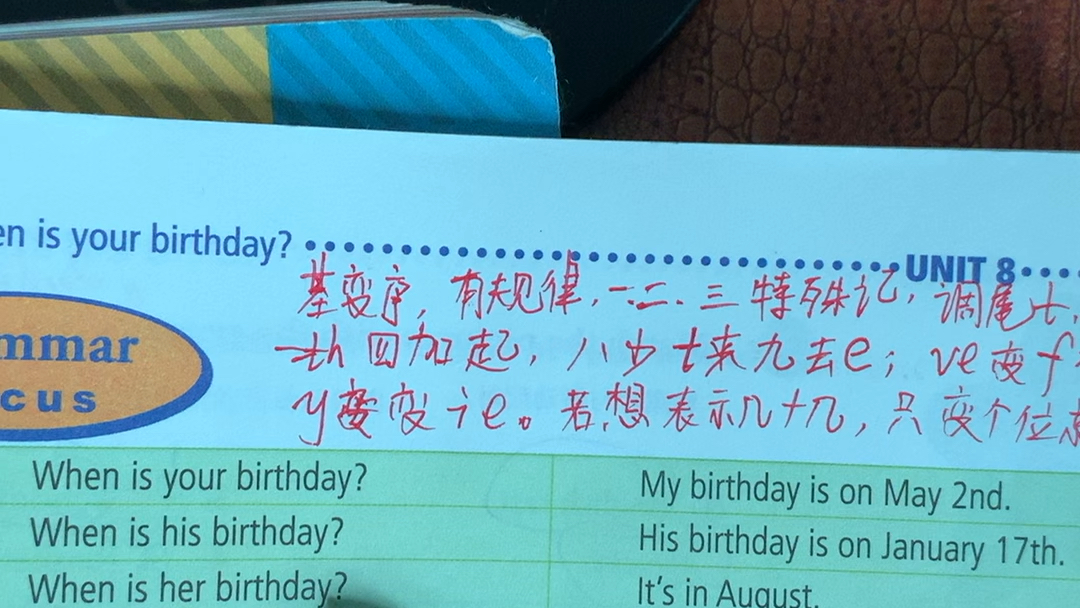 en is your birthday? UNIT 8
基变序，有规律，一、二、三特殊记，词尾t,
th四加起，八少t来九去e；ve变f
mmar
cus
y要变ie。若想表示几十几，只变个位就
When is your birthday? My birthday is on May 2nd.
When is his birthday? His birthday is on January 17th.
When is her birthday? It's in August.